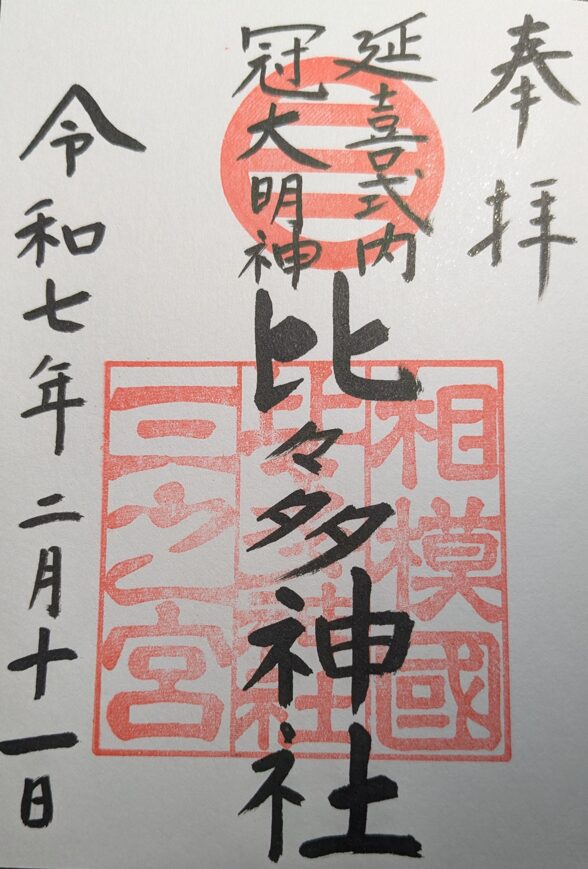 奉拝
延喜式内
冠大明神
比々多神社
令和七年二月十一日
三
相模國
三之宮